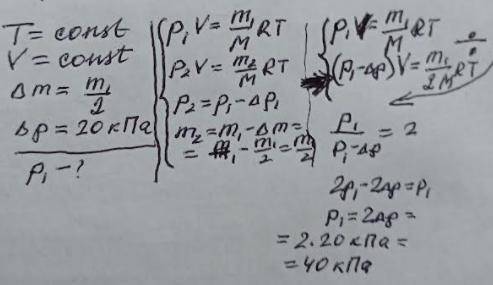 T = const
V = const
Δm = m₁/2
Δp = 20 кПа
p₁ - ?
p₁V = m₁/M RT
p₂V = m₂/M RT
p₂ = p₁ - Δp₁
m₂ = m₁ - Δm =
= m₁ - m₁/2 = m₁/2
p₁V = m₁/M RT
(p₁ - Δp)V = m₁/2M RT
÷
p₁/(p₁ - Δp) = 2
2p₁ - 2Δp = p₁
p₁ = 2Δp =
= 2·20 кПа =
= 40 кПа